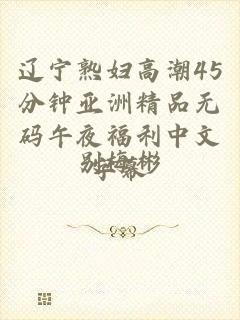 辽宁熟妇高潮45
分钟亚洲精品无
码午夜福利中文
字幕
别梅彬